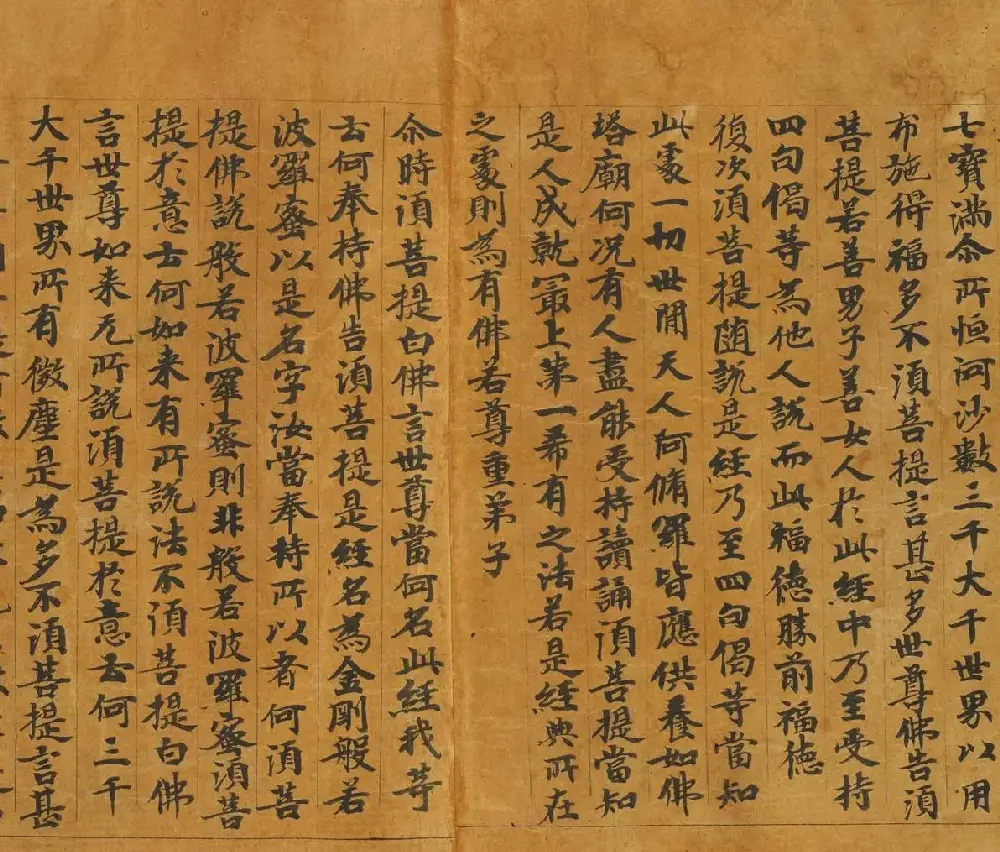 七寶滿尒所恒河沙數三千大千世界以用
布施得福多不湏菩提言甚多世尊佛告湏
菩提若善男子善女人於此經中乃至受持
四句偈等為他人說而此福德勝前福德
復次湏菩提随說是經乃至四句偈等當知
此處一切世閒天人阿脩羅皆應供養如佛
塔廟何况有人盡能受持讀誦湏菩提當知
是人成就冣上第一希有之法若是經典所在
之處則為有佛若尊重弟子
尒時湏菩提白佛言世尊當何名此經我等
云何奉持佛告湏菩提是經名為金剛般若
波羅蜜以是名字汝當奉持所以者何湏菩
提佛說般若波羅蜜則非般若波羅蜜湏菩
提於意云何如来有所說法不湏菩提白佛
言世尊如来无所說湏菩提於意云何三千
大千世界所有微塵是為多不湏菩提言甚